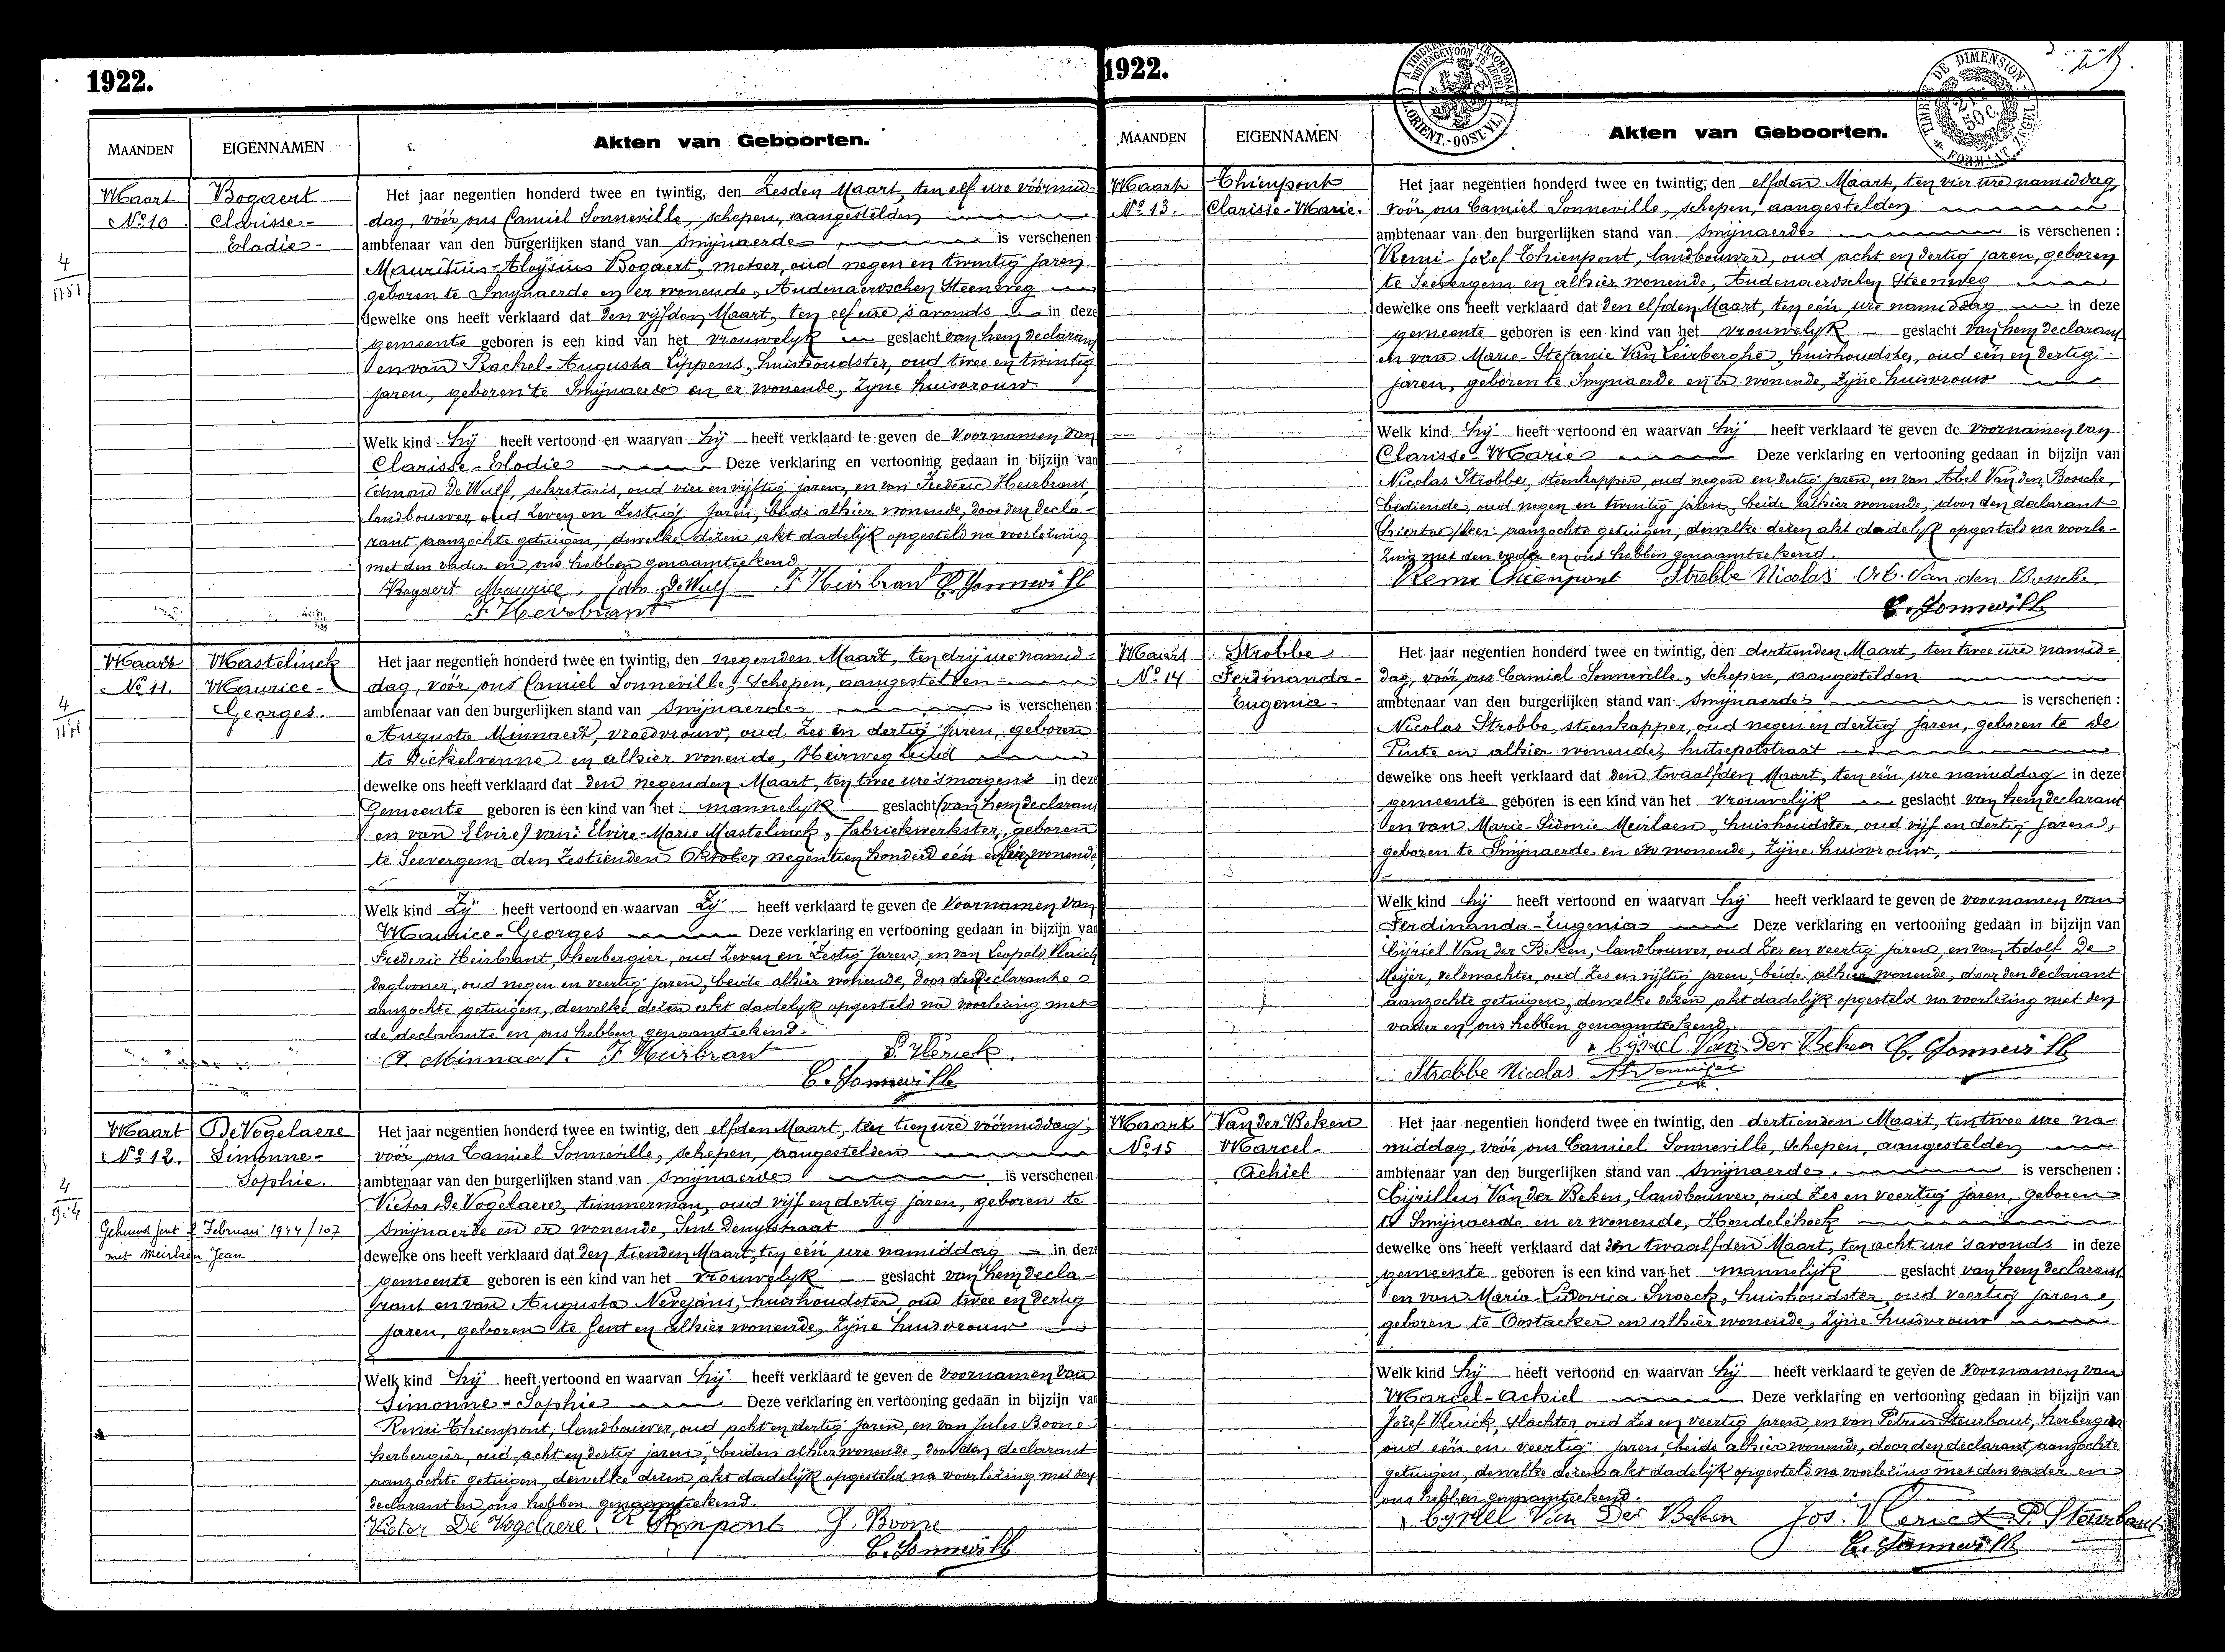 1922.
MAANDEN
EIGENNAMEN
Akten van Geboorten.
Maart
No 10
Bogaert
Clarisse-
Elodie-
4
1151
Het jaar negentien honderd twee en twintig, den Zesden Maart, ten elf ure vóórmid-
dag, vóór ons Camiel Sonneville, schepen, aangestelden
ambtenaar van den burgerlijken stand van Smijnaerde is verschenen:
Mauritius-Aloijsius Bogaert, metser, oud negen en twintig jaren
geboren te Smijnaerde en er wonende, Audenaerdschen Steenweg
dewelke ons heeft verklaard dat den vijfden Maart, ten elf ure s'avonds in deze
gemeente geboren is een kind van het vrouwelijk geslacht van hem declarant
en van Rachel-Augusta Lippens, huishoudster, oud twee en twintig
jaren, geboren te Smijnaerde en er wonende, zijne huisvrouw
Welk kind hij heeft vertoond en waarvan hij heeft verklaard te geven de voornamen van
Clarisse-Elodie Deze verklaring en vertooning gedaan in bijzijn van
Edmond De Wulf, sekretaris, oud vier en vijftig jaren, en van Frederic Heirbrant,
landbouwer, oud zeven en zestig jaren, beide alhier wonende, door den decla-
rant aanzochte getuigen, dewelke dezen akt dadelijk opgesteld na voorlezing
met den vader en ons hebben genaamteekend
Bogaert Maurice, Edm. De Wulf F Heirbrant C. Sonneville
F Heirbrant
Maart
No 11.
Mastelinck
Maurice-
Georges.
4
Het jaar negentien honderd twee en twintig, den negenden Maart, ten drij ure namid-
dag, vóór ons Camiel Sonneville, Schepen, aangestelden
ambtenaar van den burgerlijken stand van Smijnaerde is verschenen:
Augusta Minnaert, vroedvrouw, oud zes en dertig jaren, geboren
te Dickelvenne en alhier wonende, Heirweg Zuid
dewelke ons heeft verklaard dat den negenden Maart, ten twee ure 'smorgens in deze
Gemeente geboren is een kind van het mannelijk geslacht (van hem declarant
en van Elvire) van: Elvire-Marie Mastelinck, fabriekwerkster, geboren
te Seevergem den zestienden Oktober negentien honderd één en hier wonende,
Welk kind Zij heeft vertoond en waarvan Zij heeft verklaard te geven de Voornamen van
Maurice-Georges Deze verklaring en vertooning gedaan in bijzijn van
Frederic Heirbrant, herbergier, oud zeven en zestig jaren, en van Leopold Vlerick
daglooner, oud negen en veertig jaren, beide alhier wonende, door de declarante
aanzochte getuigen, dewelke dezen akt dadelijk opgesteld na voorlezing met
de declarante en ons hebben genaamteekend.
A. Minnaert. F Heirbrant L. Vlerick.
C. Sonneville
Maart
No 12.
De Vogelaere
Simonne-
Sophie.
4
Gehuwd Gent 2 Februari 1944/107
met Meirlaen Jean
Het jaar negentien honderd twee en twintig, den elfden Maart, ten tien ure vóórmiddag,
vóór ons Camiel Sonneville, schepen, aangestelden
ambtenaar van den burgerlijken stand van Smijnaerde is verschenen:
Victor De Vogelaere, timmerman, oud vijf en dertig jaren, geboren te
Smijnaerde en er wonende, Sint Denijsstraat
dewelke ons heeft verklaard dat den tienden Maart, ten één ure namiddag in deze
gemeente geboren is een kind van het vrouwelijk geslacht van hem decla-
rant en van Augusta Nevejans, huishoudster, oud twee en dertig
jaren, geboren te Gent en alhier wonende, zijne huisvrouw
Welk kind hij heeft vertoond en waarvan hij heeft verklaard te geven de voornamen van
Simonne-Sophie Deze verklaring en vertooning gedaan in bijzijn van
Remi Thienpont, landbouwer, oud acht en dertig jaren, en van Jules Boone
herbergier, oud acht en dertig jaren, beiden alhier wonende, door den declarant
aanzochte getuigen, dewelke dezen akt dadelijk opgesteld na voorlezing met den
declarant en ons hebben genaamteekend.
Victor De Vogelaere. R Thienpont J. Boone
C. Sonneville
1922.
MAANDEN
EIGENNAMEN
Akten van Geboorten.
TIMBRE DE DIMENSION
FORMAAT ZEGEL
2 FR 50 C.
Maart
No 13.
Thienpont
Clarisse-Marie.
Het jaar negentien honderd twee en twintig, den elfden Maart, ten vier ure namiddag,
vóór ons Camiel Sonneville, schepen, aangestelden
ambtenaar van den burgerlijken stand van Smijnaerde is verschenen:
Remi-Jozef Thienpont, landbouwer, oud acht en dertig jaren, geboren
te Seevergem en alhier wonende, Audenaerdschen Steenweg
dewelke ons heeft verklaard dat den elfden Maart, ten één ure namiddag in deze
gemeente geboren is een kind van het vrouwelijk geslacht van hem declarant
en van Marie-Stefanie Van Leirberghe, huishoudster, oud één en dertig
jaren, geboren te Smijnaerde en er wonende, zijne huisvrouw
Welk kind hij heeft vertoond en waarvan hij heeft verklaard te geven de voornamen van
Clarisse-Marie Deze verklaring en vertooning gedaan in bijzijn van
Nicolas Strobbe, steenkapper, oud negen en dertig jaren, en van Abel Van den Bossche,
bediende, oud negen en twintig jaren, beide alhier wonende, door den declarant
hiertoe aanzochte getuigen, dewelke dezen akt dadelijk opgesteld na voorle-
zing met den vader en ons hebben genaamteekend.
Remi Thienpont Strobbe Nicolas Van den Bossche
C. Sonneville
Maart
No 14
Strobbe
Ferdinanda-
Eugenia-
Het jaar negentien honderd twee en twintig, den dertienden Maart, ten twee ure namid-
dag, vóór ons Camiel Sonneville, schepen, aangestelden
ambtenaar van den burgerlijken stand van Smijnaerde is verschenen:
Nicolas Strobbe, steenkapper, oud negen en dertig jaren, geboren te De
Pinte en alhier wonende, hutsepotstraat
dewelke ons heeft verklaard dat den twaalfden Maart, ten één ure namiddag in deze
gemeente geboren is een kind van het vrouwelijk geslacht van hem declarant
en van Marie-Sidonie Meirlaen, huishoudster, oud vijf en dertig jaren,
geboren te Smijnaerde en er wonende, zijne huisvrouw,
Welk kind hij heeft vertoond en waarvan hij heeft verklaard te geven de voornamen van
Ferdinanda-Eugenia Deze verklaring en vertooning gedaan in bijzijn van
Cijriel Van der Beken, landbouwer, oud zes en veertig jaren, en van Adolf De
Meijer, veldwachter, oud zes en vijftig jaren, beide alhier wonende, door den declarant
aanzochte getuigen, dewelke dezen akt dadelijk opgesteld na voorlezing met den
vader en ons hebben genaamteekend.
Cyriel Van Der Beken C. Sonneville
Strobbe Nicolas
Maart
No 15
Van der Beken
Marcel-
Achiel
Het jaar negentien honderd twee en twintig, den dertienden Maart, ten twee ure na-
middag, vóór ons Camiel Sonneville, schepen, aangestelden
ambtenaar van den burgerlijken stand van Smijnaerde is verschenen:
Cijrillus Van der Beken, landbouwer, oud zes en veertig jaren, geboren
te Smijnaerde en er wonende, Hondelehoek
dewelke ons heeft verklaard dat den twaalfden Maart, ten acht ure 's avonds in deze
gemeente geboren is een kind van het mannelijk geslacht van hem declarant
en van Maria-Ludovica Snoeck, huishoudster, oud veertig jaren,
geboren te Oostacker en alhier wonende, zijne huisvrouw
Welk kind hij heeft vertoond en waarvan hij heeft verklaard te geven de Voornamen van
Marcel-Achiel Deze verklaring en vertooning gedaan in bijzijn van
Jozef Vlerick, slachter, oud zes en veertig jaren, en van Petrus Steurbaut, herbergier
oud één en veertig jaren, beide alhier wonende, door den declarant aanzochte
getuigen, dewelke dezen akt dadelijk opgesteld na voorlezing met den vader en
ons hebben genaamteekend.
Cyriel Van Der Beken Jos. Vlerick P. Steurbaut
C. Sonneville